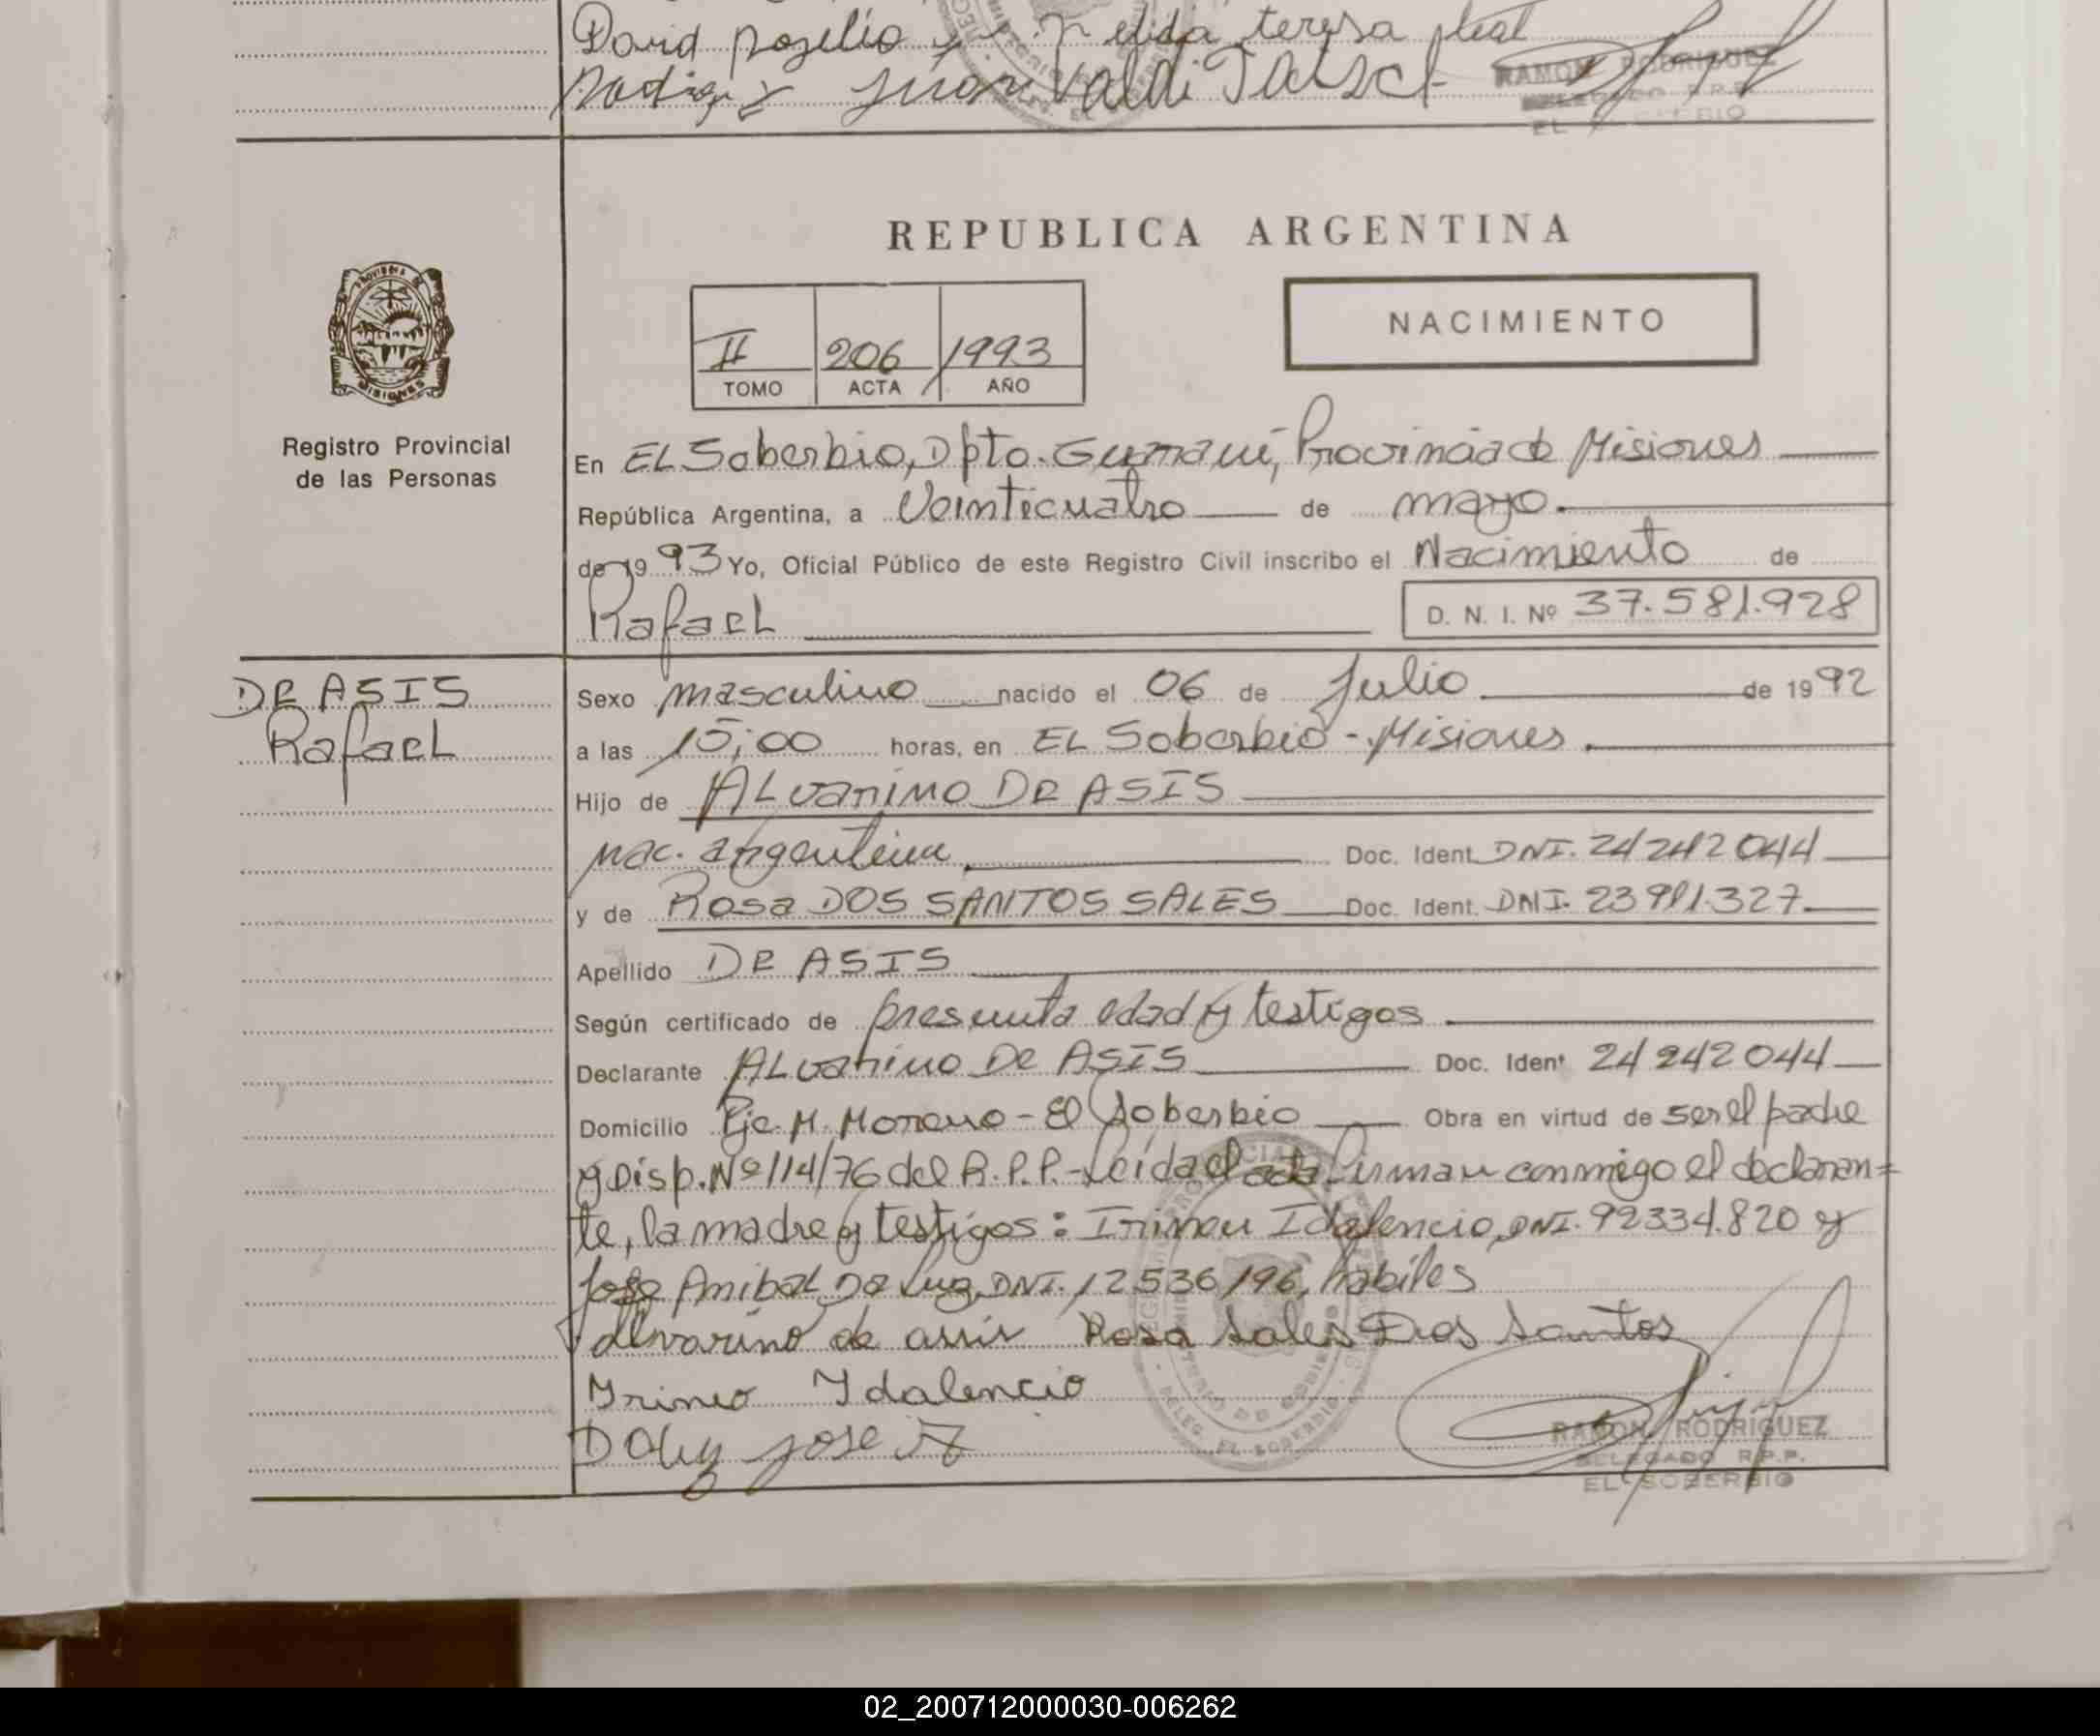 David Rogelio y Nelida teresa leal
Rodriguez Juan Valdi
RAMON RODRIGUEZ
DELEGADO R.P.P.
EL SOBERBIO
REPUBLICA ARGENTINA
NACIMIENTO
II 206 1993
TOMO ACTA AÑO
Registro Provincial
de las Personas
En EL Soberbio, Dpto. Guaraní, Provincia de Misiones
República Argentina, a Veinticuatro de mayo.
de 19 93 Yo, Oficial Público de este Registro Civil inscribo el Nacimiento de
Rafael D. N. I. Nº 37.581.928
DE ASIS
Rafael
Sexo masculino nacido el 06 de Julio de 19 92
a las 15,00 horas, en EL Soberbio - Misiones.
Hijo de ALvanimo DE ASIS
nac. argentina, Doc. Ident. DNI. 24 242 044
y de Rosa DOS SANTOS SALES Doc. Ident. DNI. 23 981.327
Apellido DE ASIS
Según certificado de presunta edad y testigos
Declarante ALvarino De ASIS Doc. Ident 24 242 044
Domicilio Pje. M. Moreno - El Soberbio Obra en virtud de ser el padre
y Disp. Nº 114/76 del R.P.P.- Leida el acta firman conmigo el declaran=
te, la madre y testigos: Irineu Idalencio, DNI. 92334.820 y
Jose Anibal Da Luz, DNI. 12 536 196, habiles
alvarino de assis Rosa Sales Dos Santos
Yrineo Ydalencio
DaLuz jose A
RAMON RODRIGUEZ
DELEGADO R.P.P.
EL SOBERBIO
02_200712000030-006262